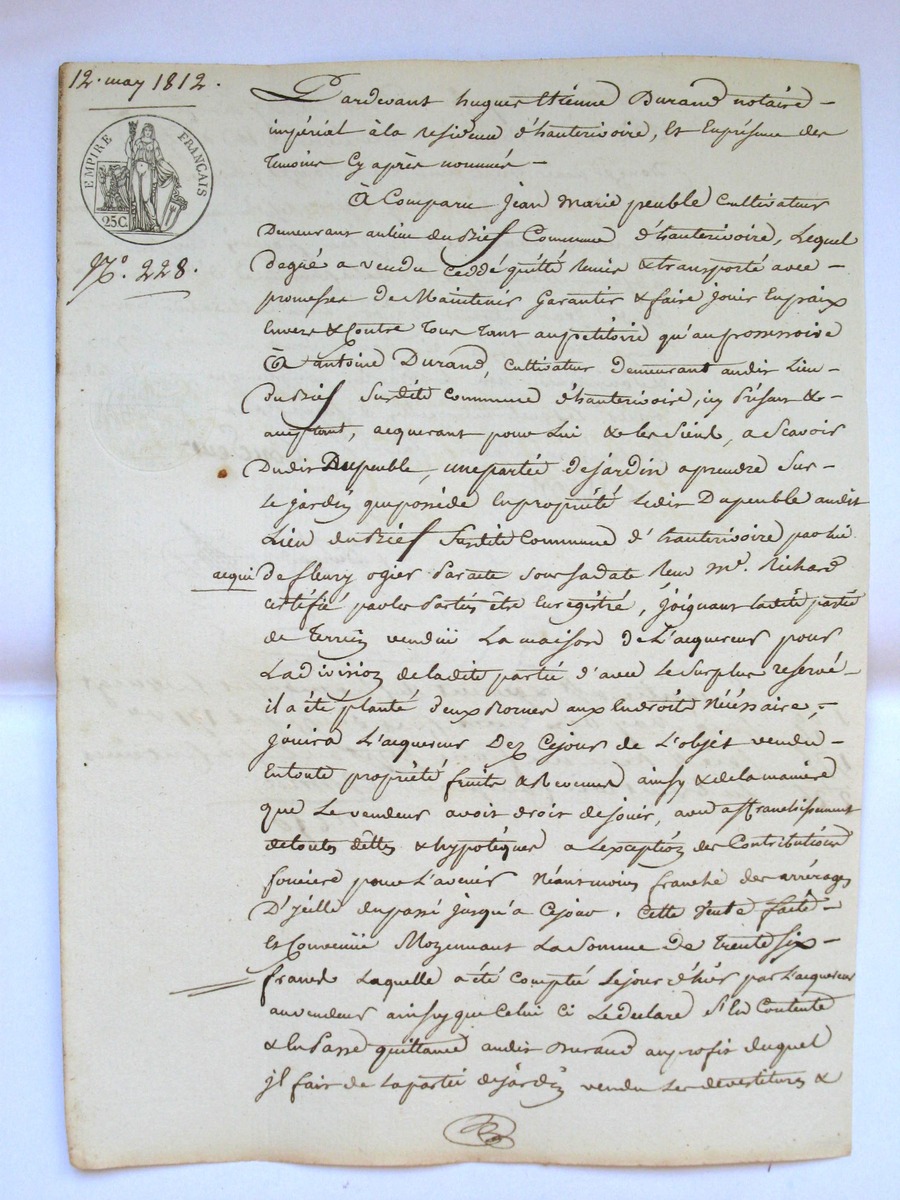 12. may 1812.
EMPIRE FRANÇAIS
25C.
N.° 228.
Pardevant hugues Etienne Durand notaire
impérial à la residence d'hauterivoire, Et Enpresence des
Temoins Cy après nommés
à Comparu Jean Marie peuble Cultivateur
Demeurant aulieu du Rief Commune d'hauterivoire, Lequel
Dagré a vendu Ceddé quitté Remis & transporté avec
promesses de Maintenir Garantir & faire jouir Enpaix
Envers & Contre Tous Tant aupetitoire qu'aupossessoire
à antoine Durand, cultivateur demeurant audit Lieu
du Rief Surdite commune d'hauterivoire, icy Présant &
acceptant, acquerant pour Lui & les Siens, a Scavoir
Dudit Dupeuble, une partie de jardin a prendre Sur
Le jardin que possède En propriété Ledit Dupeuble audit
Lieu du Rief Surdite Commune d'hauterivoire par lui
acqui De fleury ogier Par acte Sous Sa date Reçu M.e Richard
certifié par les Parties être Enregistré, joignant ladite partie
de Terrein vendue La maison de L'acquereur pour
La division de ladite partie d'avec Le Surplus reservé
il a été planté deux Bornes aux Endroits Nécessaire,
jouira L'acquereur Dez Cejour de L'objet vendu
Entoute propriété fruits & Revenus ainsy & de la maniere
que Le vendeur avoit droit de jouir, avec affranchissement
de toutes dettes & hypotèques a Lexception des Contributions
fonciere pour L'avenir Néantmoins franche des arrérages
D'jcelle du passé jusqu'a Cejour. Cette Vente faite
Et Convenue Moyennant La Somme de Trente Six
francs Laquelle a été Comptée Lejour d'hier par L'acquereur
au vendeur ainsy que Celui ci Le declare S'en Contente
& En Passe quittance audit Durand au profit duquel
jl fait de La partie de jardin vendu Les devestitures &